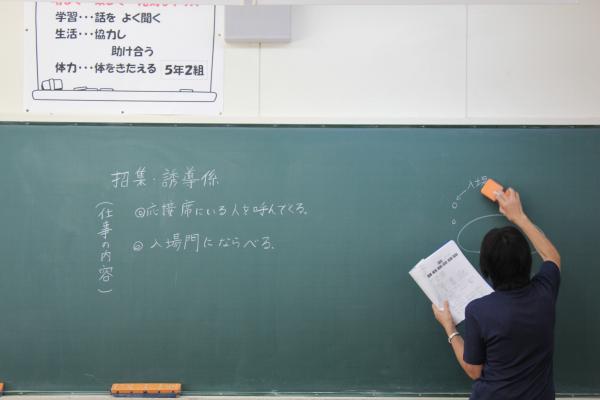 学習・・・話を よく聞く
生活・・・協力し
助け合う
体力・・・体をきたえる
5年2組
招集・誘導係
(仕事の内容)
◎応援席にいる人を呼んでくる。
◎入場門にならべる。